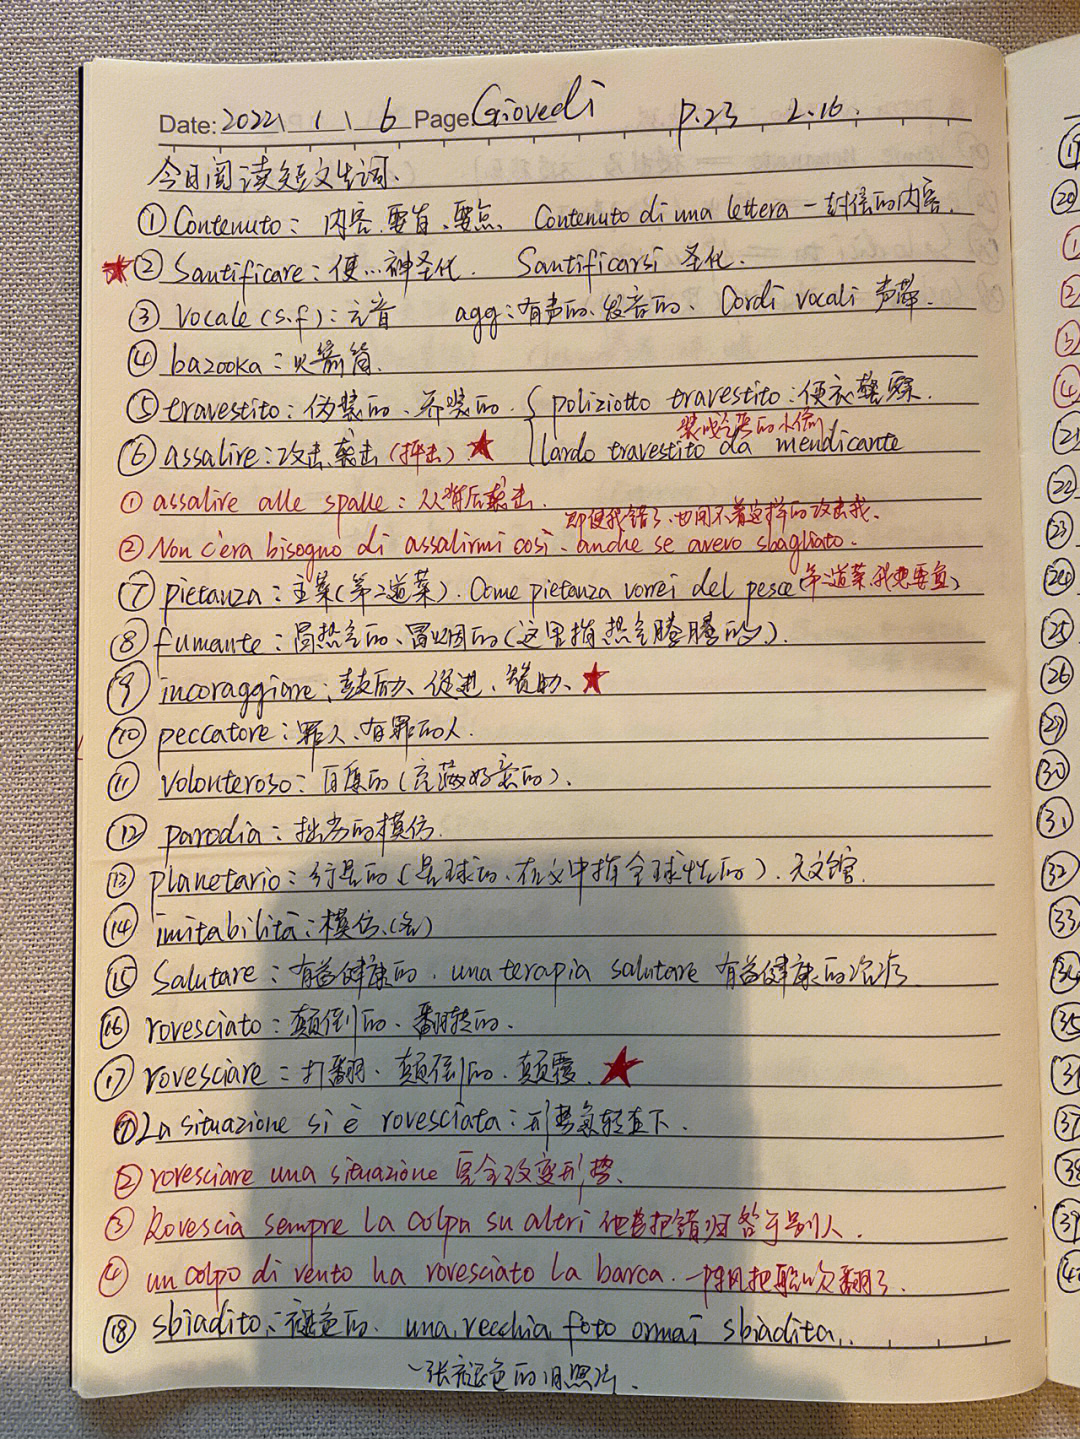 Date: 2022 \ 1 \ 6 Page: Giovedì P.23 L.16.
今日阅读短文生词.
① Contenuto: 内容、要旨、要点. Contenuto di una lettera 一封信的内容.
★② Santificare: 使…神圣化. Santificarsi 圣化.
③ Vocale (s.f): 元音 agg: 有声的、发音的. Cordi vocali 声带.
④ bazooka: 火箭筒.
⑤ travestito: 伪装的、乔装的. { poliziotto travestito: 便衣警察.
装成乞丐的小偷
⑥ assalire: 攻击、袭击 (抨击) ★ lardo travestito da mendicante
① assalire alle spalle: 从背后袭击.
即使我错了、也用不着这样的攻击我.
② Non c'era bisogno di assalirmi così. anche se avevo sbagliato.
⑦ pietanza: 主菜(第2道菜). Come pietanza vorrei del pesce (第2道菜我想要鱼)
⑧ fumante: 冒热气的、冒烟的(这里指热气腾腾的).
⑨ incoraggiare: 鼓励、促进、赞助、★
⑩ peccatore: 罪人、有罪的人.
⑪ volonteroso: 自愿的 (充满好意的).
⑫ parodia: 拙劣的模仿.
⑬ planetario: 行星的 (星球的、在文中指全球性的). 天文馆.
⑭ imitabilità: 模仿、(名)
⑮ Salutare: 有益健康的. una terapia salutare 有益健康的治疗.
⑯ rovesciato: 颠倒的、翻转的.
⑰ rovesciare: 打翻、颠倒的、颠覆. ★
① La situazione si è rovesciata: 形势急转直下.
② rovesciare una situazione 完全改变形势.
③ Rovescia sempre la colpa su altri 他总把错归咎于别人.
④ un colpo di vento ha rovesciato la barca. 一阵风把船吹翻了.
⑱ sbiadito: 褪色的. una vecchia foto ormai sbiadita.
一张褪色的旧照片.
⑲
⑳
①
②
③
④
㉑
㉒
㉓
㉔
㉕
㉖
㉙
㉚
㉛
㉜
㉝
㉞
㉟
㊲
㊳
㊴